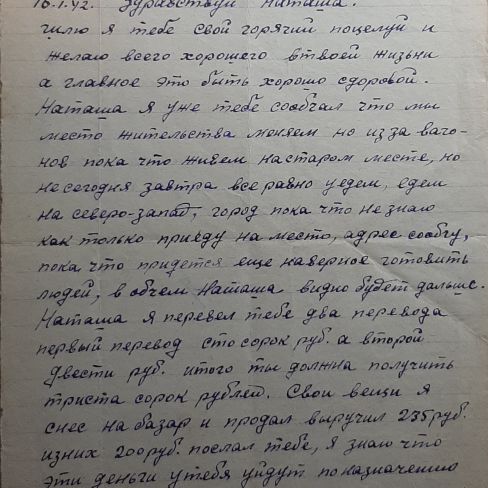 16.1.42. Здравствуй Наташа!
шлю я тебе свой горячий поцелуй и
желаю всего хорошего втвоей жизьни
а главное это быть хорошо сдоровой.
Наташа я уже тебе сообчал что мы
место жительства меняем но из за ваго-
нов пока что живем настаром месте, но
несегодня завтра все равно уедем, едем
на северо-запад, город пока что незнаю
как только приеду на место, адрес сообчу,
пока что придется еще наверное готовить
людей, в обчем Наташа видно будет дальше.
Наташа я перевел тебе два перевода
первый перевод сто сорок руб. а второй
двести руб. итого ты должна получить
триста сорок рублей. Свои вещи я
снес на базар и продал выручил 235 руб.
изних 200 руб. послал тебе, я знаю что
эти деньги утебя уйдут поназначению